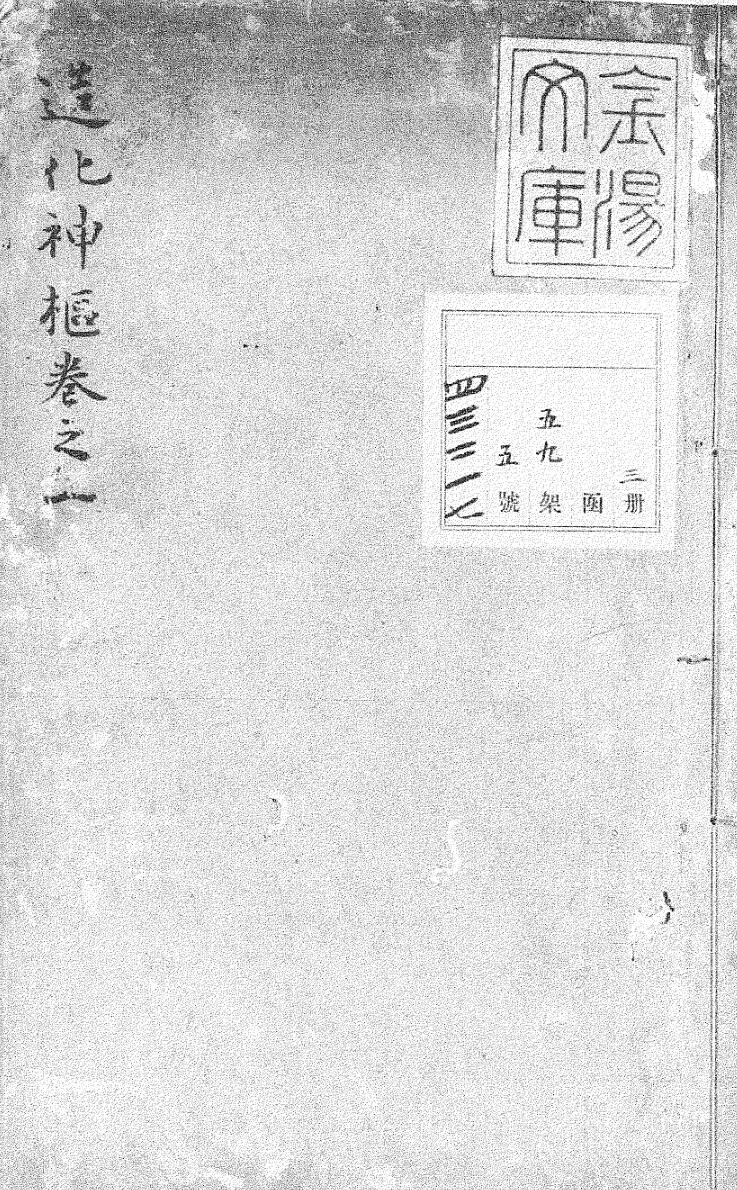 金湯
文庫
三册
函
五九架
五號
四三二一七
造化神樞卷之